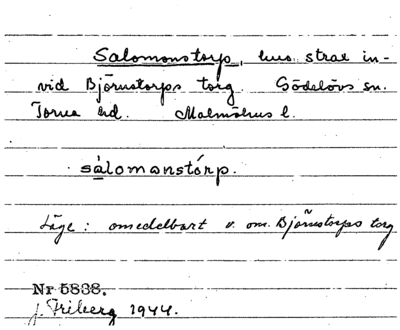 Salomonstorp, hus strax in-
vid Björnstorps torg. Gödelövs sn.
Torna hd. Malmöhus l.
sálomanstórp.
Läge: omedelbart v. om Björnstorps torg
Nr 5838.
J. Friberg 1944.